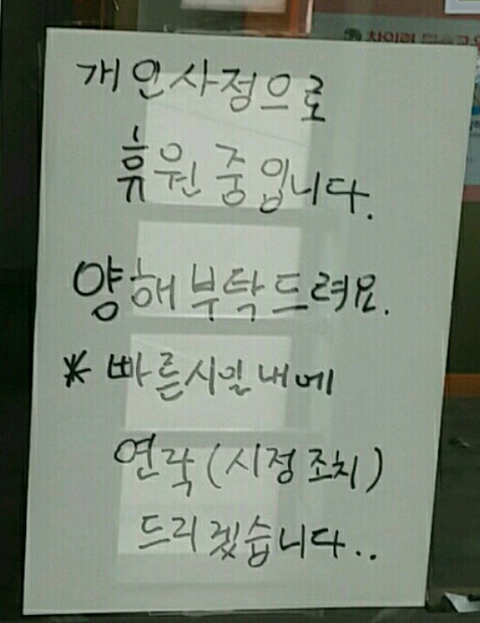 개인사정으로
휴원 중입니다.
양해 부탁드려요.
* 빠른시일내에
연락(시정조치)
드리겠습니다..